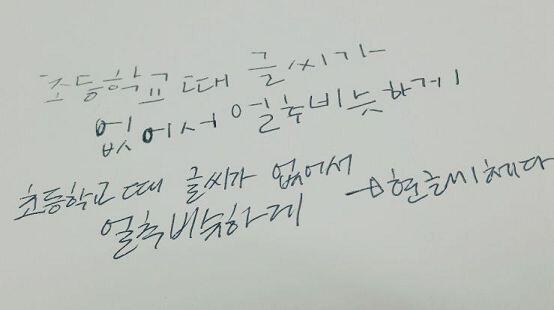 초등학교 때 글씨가
없어서 얼추비슷하게
초등학교 때 글씨가 없어서
얼추비슷하게 → 현글씨체다